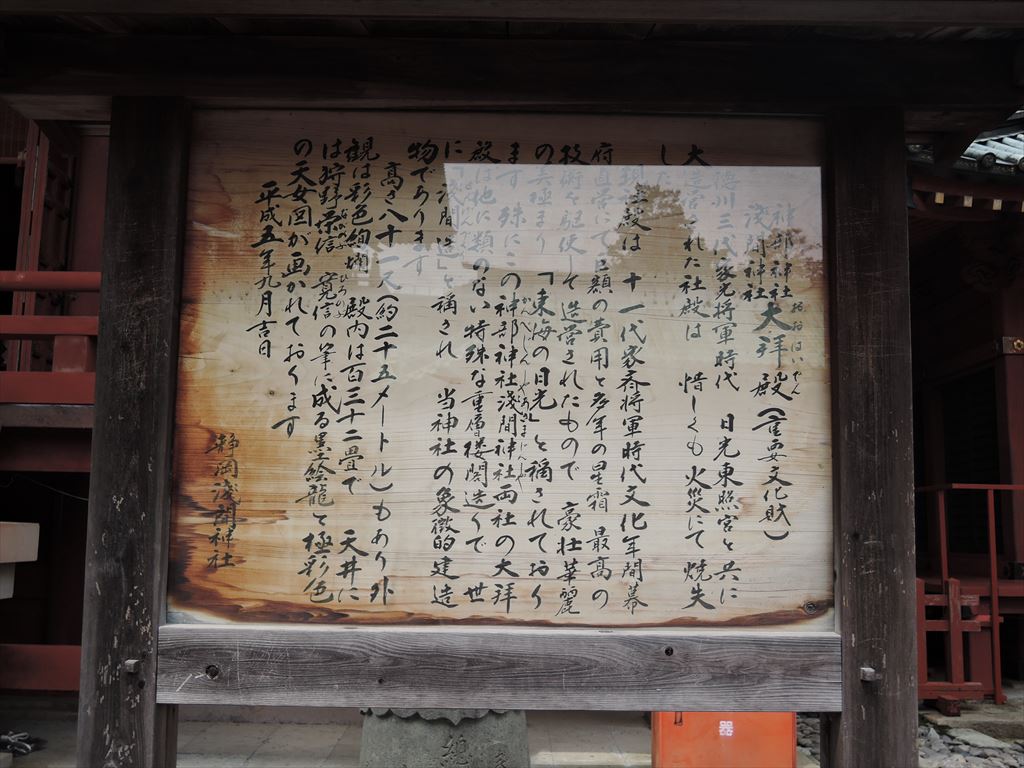 神部神社
浅間神社
大拝殿(重要文化財)
おおはいでん
徳川三代家光将軍時代 日光東照宮と共に
大造営された社殿は 惜しくも火災にて焼失
した
現社殿は 十一代家斉将軍時代文化年間幕
府直営にて巨額の費用と多年の星霜 最高の
技術を駆使して造営されたもので 豪壮華麗
の美極まり 「東海の日光」と称されており
ます 殊にこの神部神社浅間神社両社の大拝
殿は他に類のない特殊な重層楼閣造りで 世
に「浅間造」と称され 当神社の象徴的建造
物であります
高さ八十一尺(約二十五メートル)もあり外
観は彩色絢爛 殿内は百三十二畳で 天井に
は狩野栄信 寛信の筆に成る墨絵龍と極彩色
の天女図が画かれております
平成五年九月吉日
静岡浅間神社
器
總